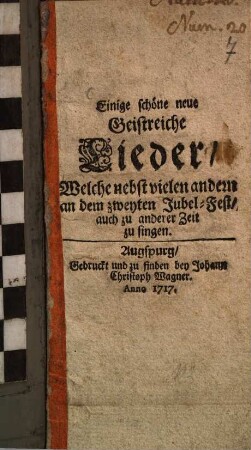 Num. 20
7
Einige schöne neue
Geistreiche
Lieder/
Welche nebst vielen andern
an dem zweyten Jubel-Fest/
auch zu anderer Zeit
zu singen.
Augspurg/
Gedruckt und zu finden bey Johann
Christoph Wagner.
Anno 1717.